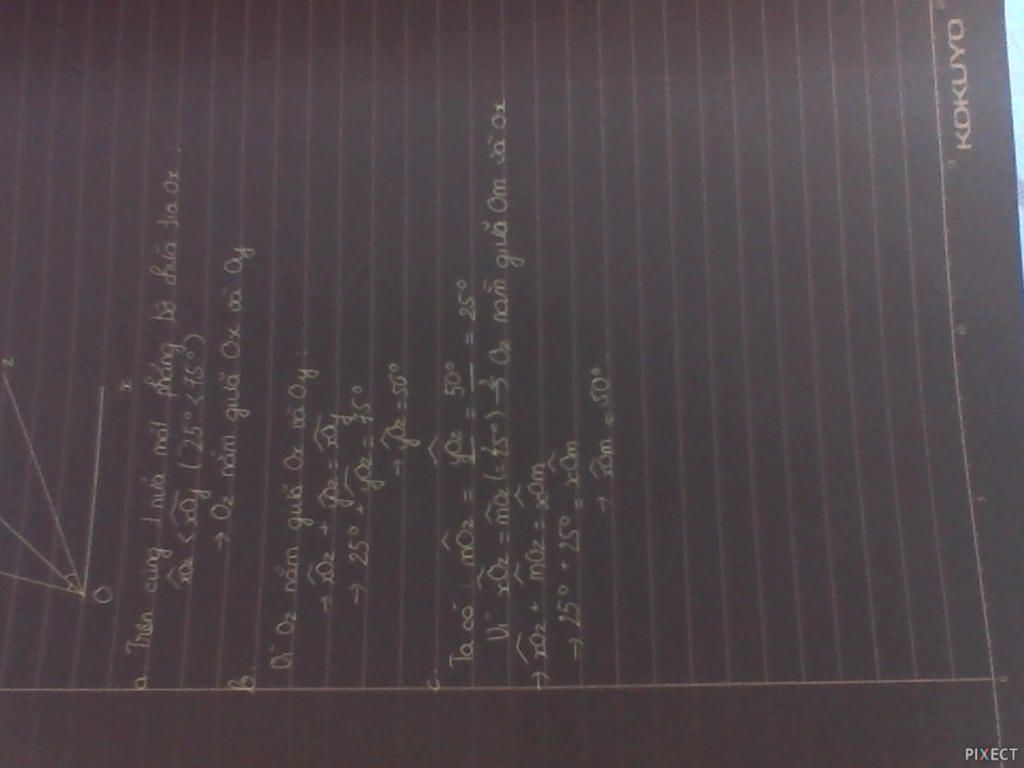 z
x
O
a. Trên cùng 1 nửa mặt phẳng bờ chứa tia Ox.
xOz < xOy (25° < 75°)
→ Oz nằm giữa Ox và Oy
b. Vì Oz nằm giữa Ox và Oy.
→ xOz + yOz = xOy
→ 25° + yOz = 75°
→ yOz = 50°
c. Ta có mOz = yOz = 50° = 25°
Vì xOz = mOz (= 25°) → Oz nằm giữa Om và Ox
→ xOz + mOz = xOm
→ 25° + 25° = xOm
→ xOm = 50°
KOKUYO
PIXECT